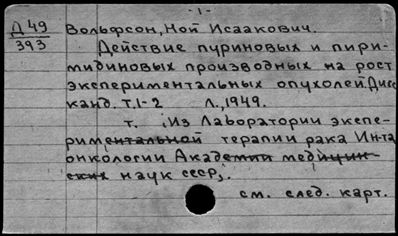 -1-
Д 49
393
Вольфсон, Ной Исаакович.
Действие пуриновых и пири-
мидиновых производных на рост
экспериментальных опухолей. Дисс
канд. Т.1-2 Л., 1949.
т. Из Лаборатории экспе-
риментальной терапии рака Ин-та
онкологии Академии медицин-
ских наук СССР,.
см. след. карт.